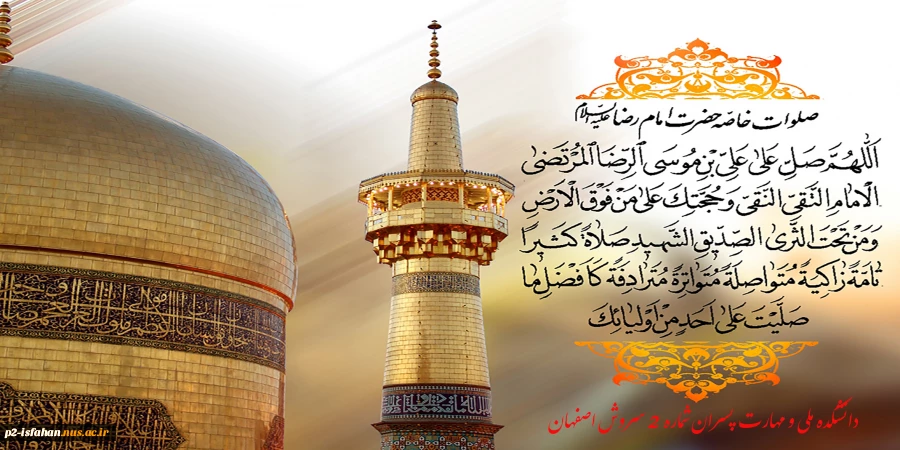 صلوات خاصّه حضرت امام رضا علیه السلام
اَللّٰهُمَّ صَلِّ عَلىٰ عَلِىِّ بْنِ مُوسَى الرِّضَا الْمُرْتَضىٰ
الْاِمَامِ التَّقِىِّ النَّقِىِّ وَحُجَّتِكَ عَلىٰ مَنْ فَوْقَ الْاَرْضِ
وَمَنْ تَحْتَ الثَّرىٰ الصِّدّيقِ الشَّهيدِ صَلَاةً كَثيرًا
تٰامَّةً زٰاكِيَةً مُتَوٰاصِلَةً مُتَوٰاتِرَةً مُتَرٰادِفَةً كَاَفْضَلِ مٰا
صَلَّيْتَ عَلىٰ اَحَدٍ مِنْ اَوْلِيٰائِكَ
دانشکده ملی و مهارت پسران شماره 2 سروش اصفهان
p2-isfahan.nus.ac.ir